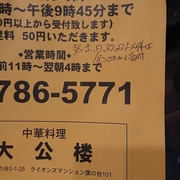 時〜午後9時45分まで
0円以上から受付致します)
料 50円いただきます。
*営業時間*
前11時〜翌朝4時まで
786-5771
中華料理
大公楼
の台2-1-25 ライオンズマンション旗の台101